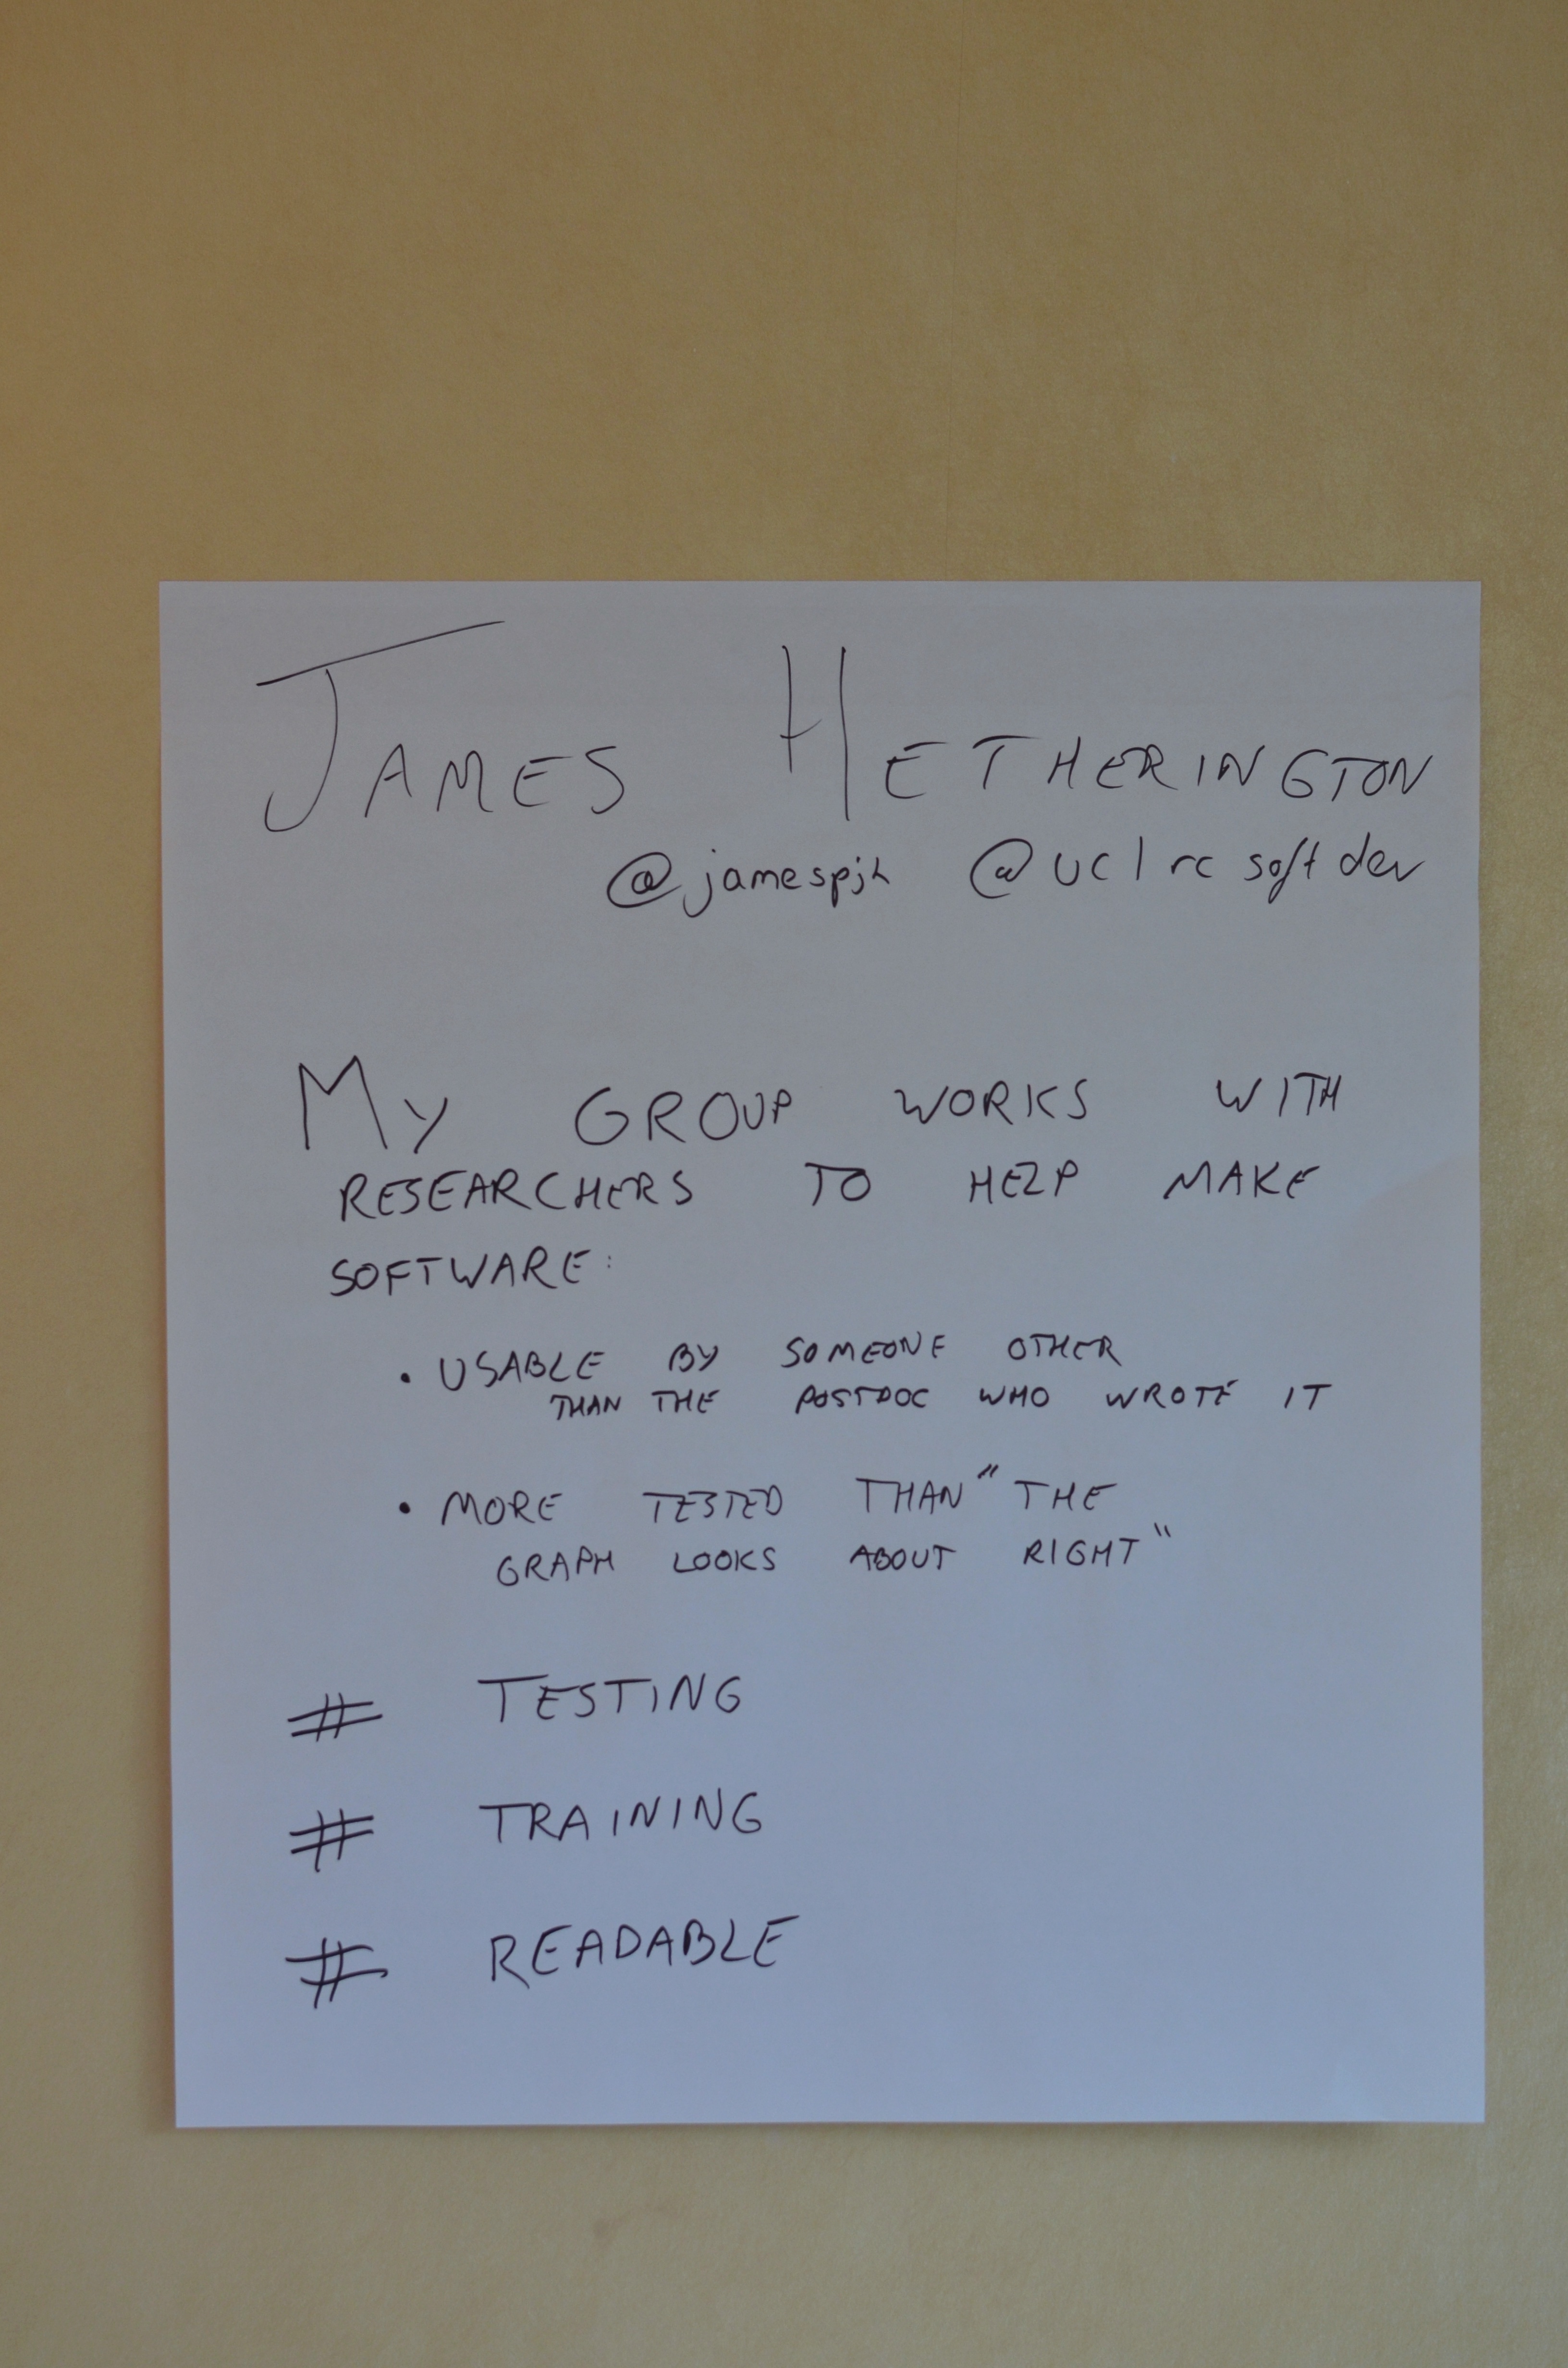 JAMES HETHERINGTON
@jamespjh @uclrcsoftdev
MY GROUP WORKS WITH
RESEARCHERS TO HELP MAKE
SOFTWARE:
• USABLE BY SOMEONE OTHER
THAN THE POSTDOC WHO WROTE IT
• MORE TESTED THAN "THE
GRAPH LOOKS ABOUT RIGHT"
# TESTING
# TRAINING
# READABLE